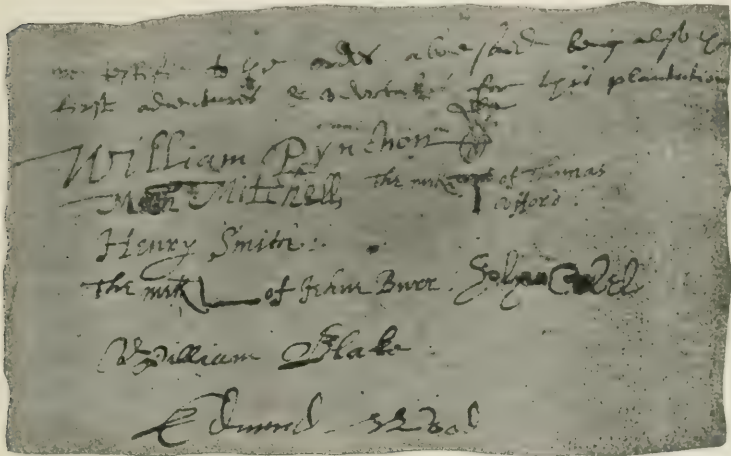 testifie to the order abovesaid being all of
first adventurers & for this plantation
William Pynchon
Mitchell The mark of Thomas
Ufford
Henry Smith:
The mark of Jehue Burr. John Cabel
William Blake
Edmund Wood